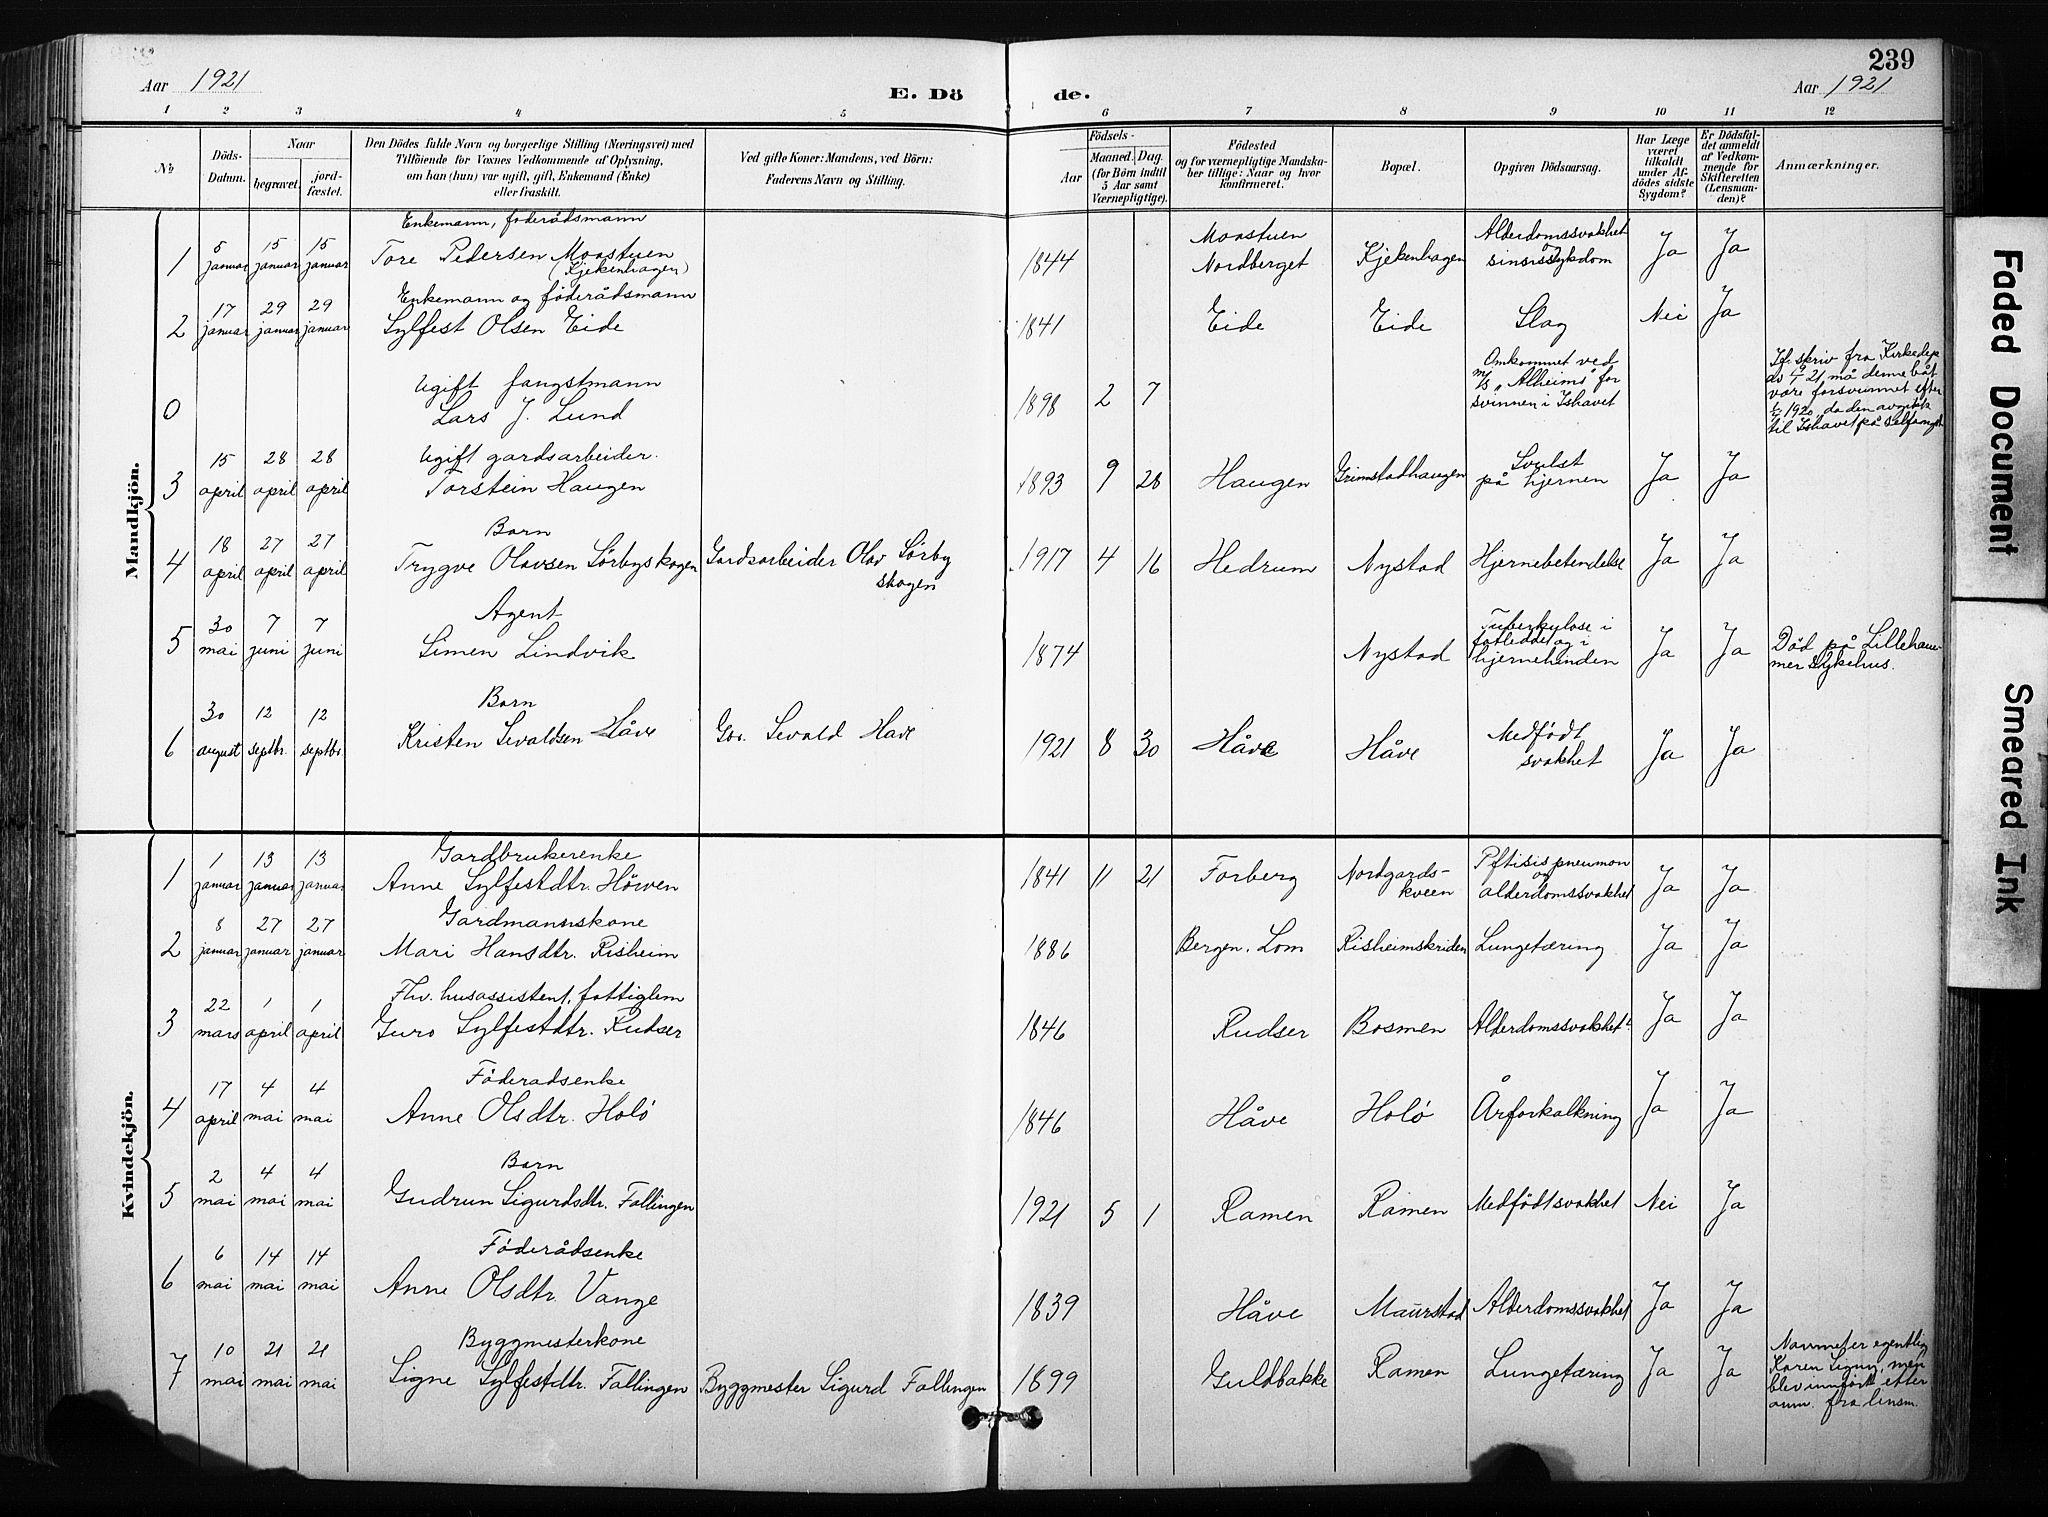 239
Aar 1921
E. Döde.
Aar 1921
1 2 3 4 5 6 7 8 9 10 11 12
No
Döds-Datum.
Naar
begravet.
jordfæstet.
Den Dödes fulde Navn og borgerlige Stilling (Næringsvei) med
Tilföiende for Voxnes Vedkommende af Oplysning,
om han (hun) var ugift, gift, Enkemand (Enke)
eller fraskilt.
Ved gifte Koner: Mandens, ved Börn:
Faderens Navn og Stilling.
Födsels-
Aar
Maaned. Dag.
(for Börn indtil
5 Aar samt
Værnepligtige).
Födested
og for værnepligtige Mandskaber tillige: Naar og hvor
konfirmeret.
Bopæl.
Opgiven Dödsaarsag.
Har Læge
været
tilkaldt
under Afdödes sidste
Sygdom?
Er Dödsfaldet anmeldt
af Vedkommende for
Skifteretten
(Lensmanden)?
Anmærkninger.
Mandkjön.
Enkemann, föderådsmann
1 5 januar 15 januar 15 januar Tore Pedersen Moastuen (Kjekenhagen) 1844 Moastuen Nordberget Kjekenhagen Alderdomssvakhet og sinsissykdom Ja Ja
Enkemann og föderådsmann
2 17 januar 29 januar 29 januar Sylfest Olsen Eide 1841 Eide Eide Slag Nei Ja
Ugift fangstmann
0 Lars J. Lund 1898 2 7 Omkommet ved m/s "Alheims" forsvinnen i Ishavet
Jf. skriv fra Kirkedep
av 21 må denne båt
være forsvunnet efter
1920, da den avgikk
til Ishavet på selfangst
Ugift gardsarbeider.
3 15 april 28 april 28 april Torstein Haugen 1893 9 28 Haugen Grimstadhaugen Svulst på hjernen Ja Ja
Barn
4 18 april 27 april 27 april Trygve Olavsen Sörbyskogen Gardsarbeider Olav Sörbyskogen 1917 4 16 Hedrum Nystad Hjernebetendelse Ja Ja
Agent
5 30 mai 7 juni 7 juni Simen Lindvik 1874 Nystad Tuberkulose i fotleddet og i hjernehinden Ja Ja Död på Lillehammer sykehus.
Barn
6 30 august 12 septbr. 12 septbr. Kristen Sevaldsen Håve Gbr. Sevald Håve 1921 8 30 Håve Håve Medfödt svakhet Ja Ja
Kvindekjön.
Gardbrukerenke
1 1 januar 13 januar 13 januar Anne Sylfestdtr. Hörven 1841 11 21 Forberg Nordgardskveen Pftisis pneumon og alderdomssvakhet Ja Ja
Gardmannskone
2 8 januar 27 januar 27 januar Mari Hansdtr. Risheim 1886 Bergen. Lom Risheimskriden Lungetæring Ja Ja
Fhv. husassistent, fattiglem
3 22 mars 1 april 1 april Guro Sylfestdtr. Rudser 1846 Rudser Bosmen Alderdomssvakhet Ja Ja
Föderadsenke
4 17 april 4 mai 4 mai Anne Olsdtr. Holö 1846 Håve Holö Årforkalkning Ja Ja
Barn
5 2 mai 4 mai 4 mai Gudrun Sigurdsdtr. Fallingen 1921 5 1 Ramen Ramen Medfödt svakhet Nei Ja
Föderådsenke
6 6 mai 14 mai 14 mai Anne Olsdtr. Vange 1839 Håve Maurstad Alderdomssvakhet Ja Ja
Byggmesterkone
7 10 mai 21 mai 21 mai Signe Sylfestdtr. Fallingen Byggmester Sigurd Fallingen 1899 Guldbakke Ramen Lungetæring Ja Ja
Navnet er egentlig
Karen Signy, men
blev innfört etter
anm. fra lensm.
Faded Document
Smeared Ink